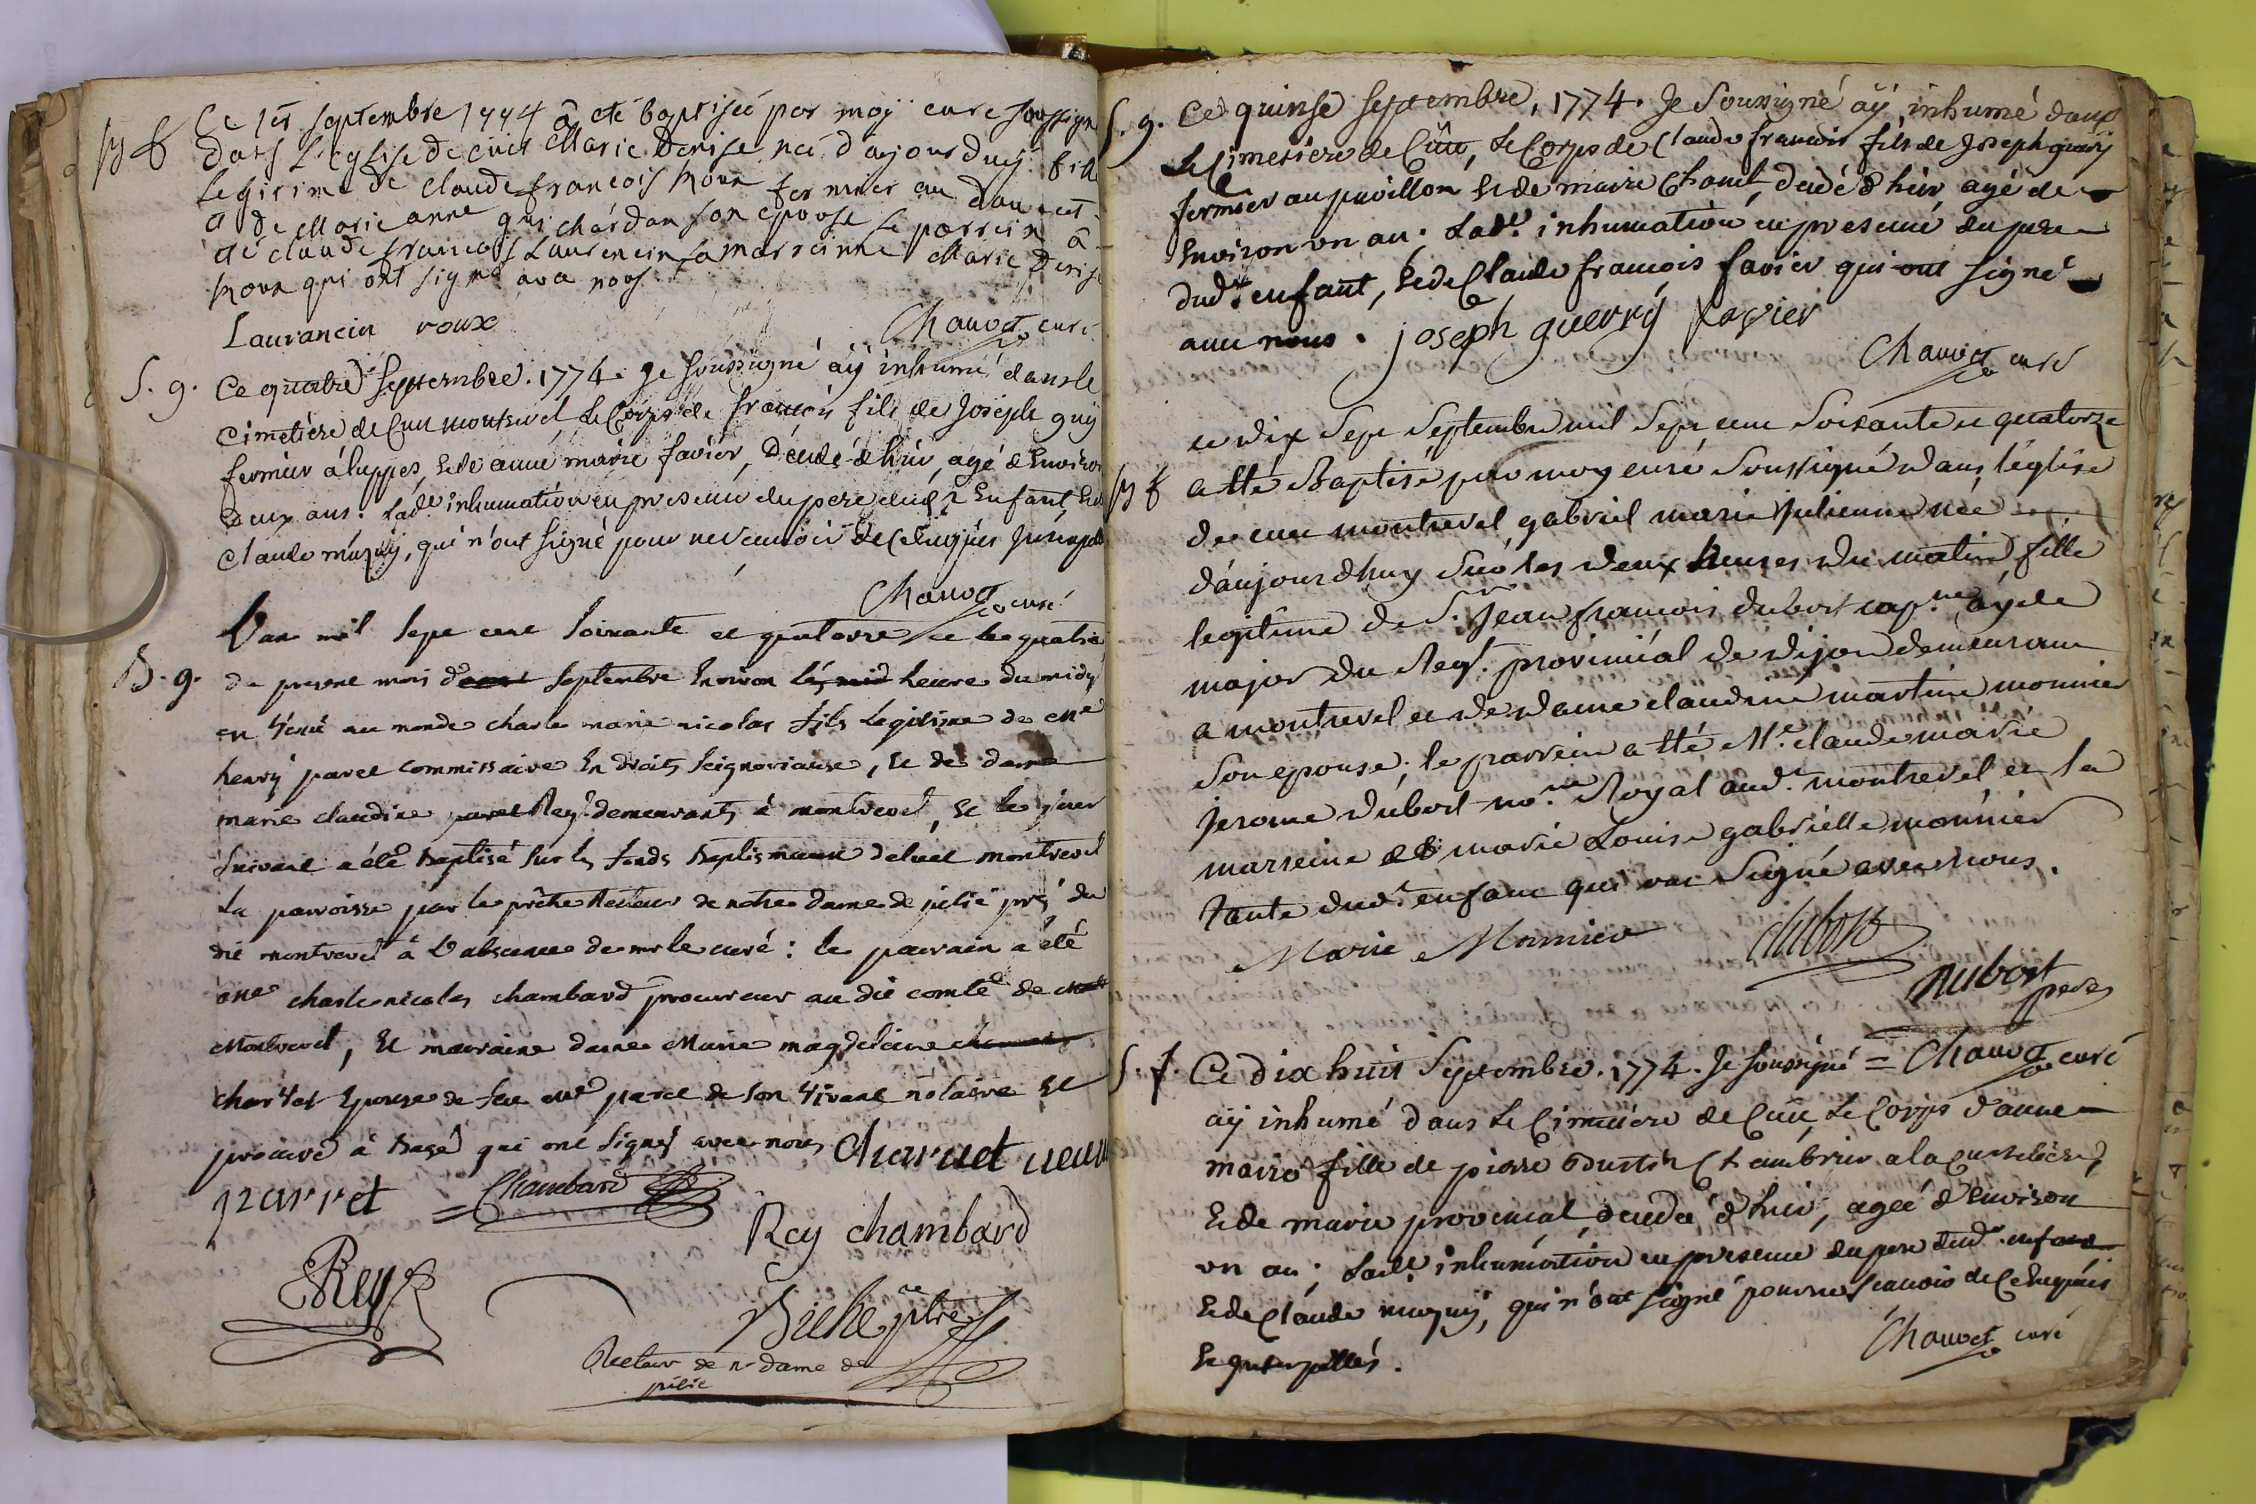 B f Ce 1er septembre 1774 a eté baptisée par moy curé soussigné
dans l'eglise de cuet Marie Denise née d'aujourduy fille
legitime de claude francois roux fermier au
et de Marie anne guichardan son epouse le parrein a
eté claude francois Laurencin la marreinne Marie Denise
roux qui ont signé avec nous
Laurancin roux
Chauvet curé
S. g. Ce quatre septembre. 1774. je soussigné aÿ inhumé dans le
cimetière de Cuet montrevel le Corps de françois fils de Joseph guy
fermier à luppes, et de anne marie favier, décedé d'hier, agé d'Environ
deux ans. Lade. inhumation en presence du pere dud. Enfant, et de
Claude muguy, qui n'ont signé pour ne scavoir de ce Enquis Interpellés
Chauvet curé
B. g. L'an mil sept cent soixante et quatorze et le quatre
du present mois de septembre Environ les heure du midy
en venu au monde charle marie nicolas fils legitime de Me
henry parret commissaire En droits seignoriaux, et de dame
marie claudine Rey demeurants à montrevel, et le jour
suivant a été baptisé sur les fonds baptismaux de Cuet montrevel
La parroisse par le prêtre Recteur de notre dame de pitié près du
dit montrevel à l'absence de mr le curé : le parrain a été
me charle nicolas chambard procureur au dit comté de
Montrevel, Et marraine dame Marie magdeleine
charvet Epouse de feu me paret de son vivant notaire Et
procureur à Bagé qui ont signés avec nous Charvet veuve
parret Chambard
Rey chambard
Rey
Biche ptre
Recteur de n. dame de
pitié
S. g. Ce quinse septembre, 1774. Je soussigné aÿ inhumé dans
Le Cimetiere de Cuet, Le Corps de Claude francois fils de Joseph guerry
fermier au pavillon et de marie Chanel, decedé d'hier agé de
Environ un an ; Lade. inhumation en presence du pere
dud. enfant, et de Claude francois favier qui ont signé
avec nous. joseph guerry favier
Chauvet curé
B f ce dix sept septembre mil sept cent soixante et quatorze
a été Baptisé par moy curé soussigné dans l'église
de cuet montrevel gabriel marie julienne née
d'aujourdhuy sur les deux heures du matin, fille
legitime de S.r jean francois dubost capne. ayde
major du Regt. provincial de dijon demeurant
a montrevel et de dame claudine martine monnier
son epouse; le parrein a été Me. claude marie
jerome dubost nore. Royal aud. montrevel et la
marreine marie Louise gabrielle monnier
tante dud. enfant qui ont signé avec nous.
Marie Monnier dubost
Dubost
pere
= Chauvet curé
S. f. Ce dix huit septembre. 1774. Je soussigné
aÿ inhumé dans le Cimetiere de Cuet, Le Corps d'anne
marie fille de pierre Goustin Chambrier a la
et de marie provencal decedé d'hier, ageé d'Environ
un an ; Lade. inhumation en presence du pere dud. enfant
et de Claude muguy, qui n'ont signé pour ne scavoir de ce Enquis
Et Interpellés.
Chauvet curé